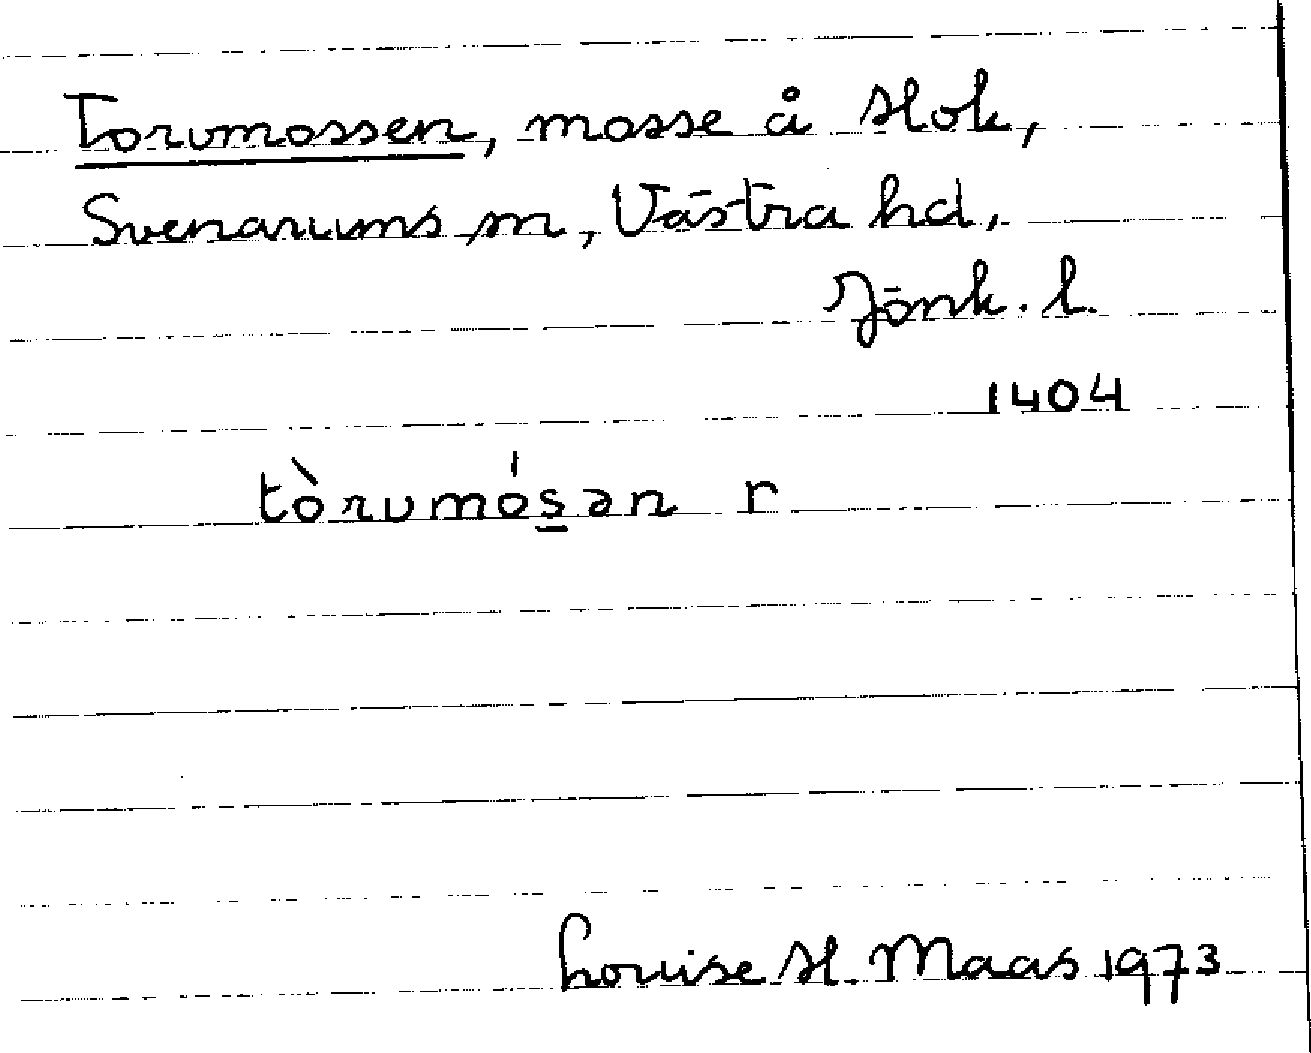 Torvmossen, mosse å Hok,
Svenarums sn, Västra hd,
Jönk. l.
1404
tòrvmósən r
Louise H. Maas 1973